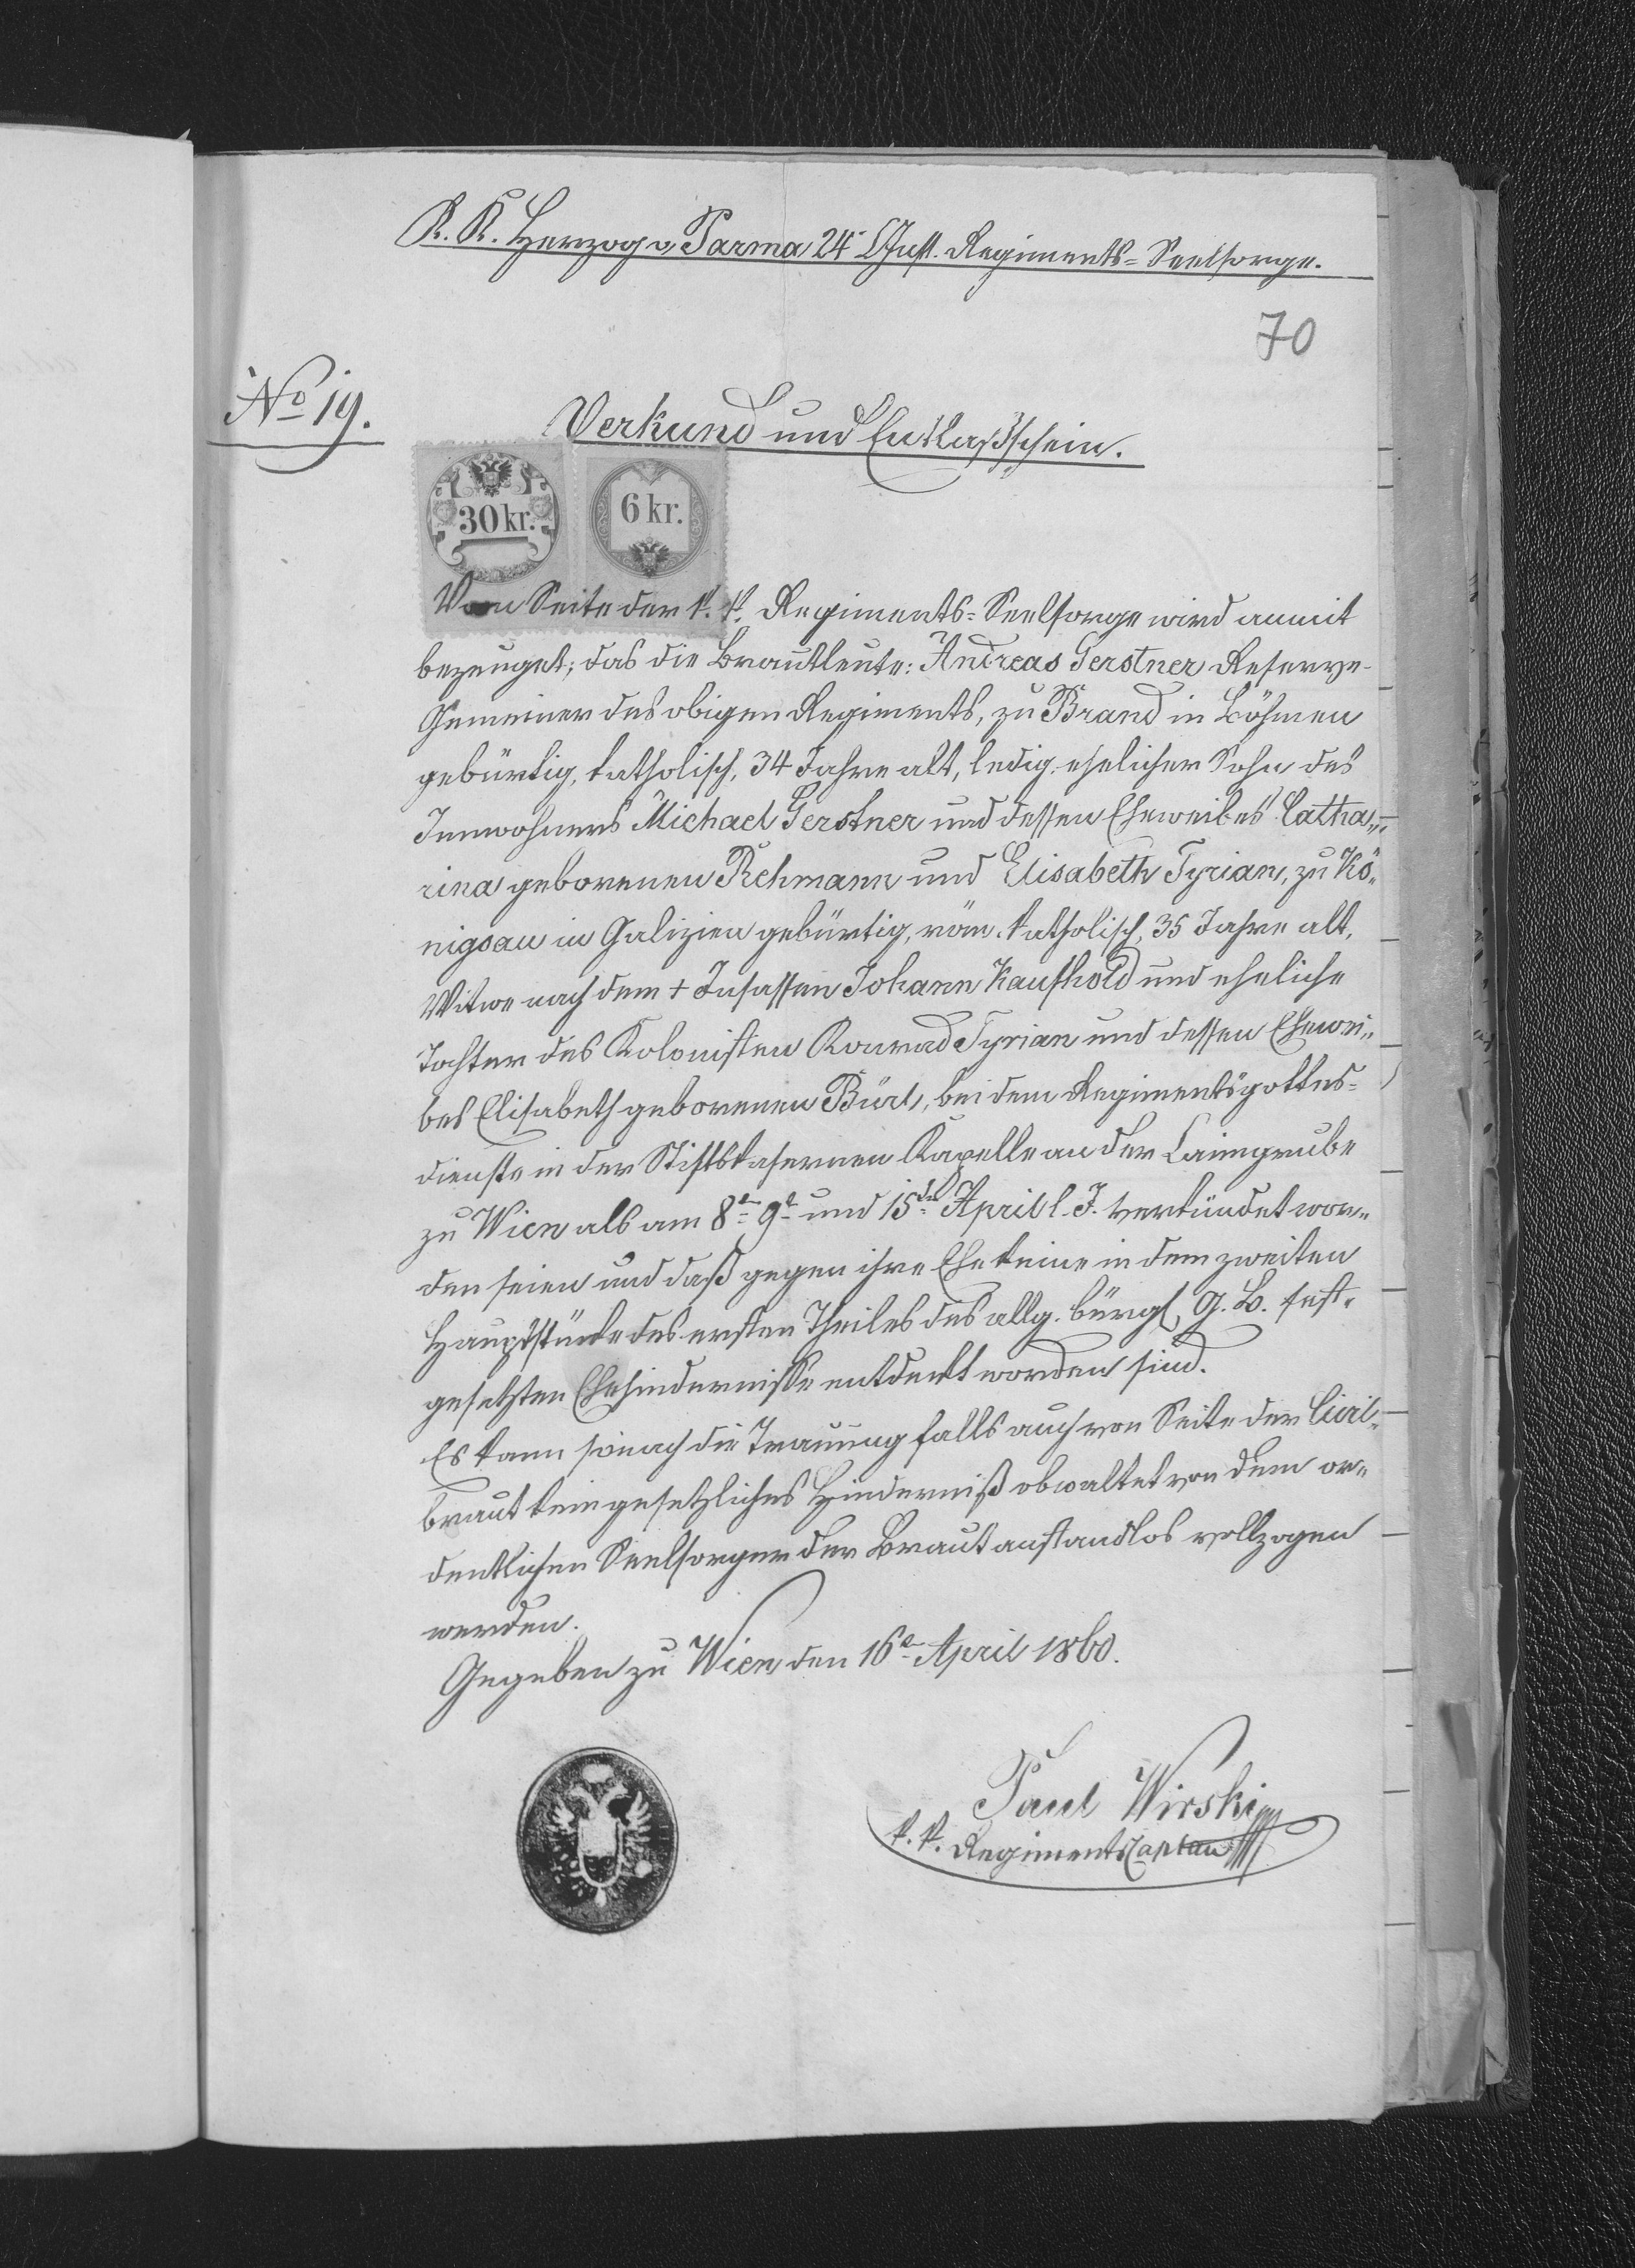 K. K. Herzog v Parma 24t Inft. Regiments=Seelsorge.
70
No 19.
Verkund und Entlaßschein.
30 kr.
6 kr.
Von Seite der k. k. Regiments=Seelsorge wird anmit
bezeuget, das die Brautleute: Andreas Gerstner Reserve-
Gemeiner des obigen Regiments, zu Brand in Böhmen
gebürtig, katholisch, 34 Jahre alt, ledig, ehelicher Sohn des
Innwohners Michael Gerstner und dessen Eheweibes Catha„
rina geborenen Rehmann und Elisabeth Tyrian, zu Kö„
nigsau in Galizien gebürtig, röm. katholisch, 35 Jahre alt,
Witwe nach dem + Insassen Johann Kaufhold und eheliche
Tochter des Kolonisten Konrad Tyrian und dessen Ehewei„
bes Elisabeth geborenen Bürt, bei dem Regimentsgottes=
dienste in der Stiftskasernen Kapelle an der Laimgrube
zu Wien als am 8t 9t und 15ten April l. J. verkündet wor„
den seien und daß gegen ihre Ehe keine in dem zweiten
Hauptstücke des ersten Theiles des allg. bürgl. G. B. fest„
gesetzten Ehehindernisse entdeckt worden sind.
Es kann sonach die Trauung falls auch von Seite der Civil„
braut kein gesetzliches Hinderniß obwaltet von dem or„
dentlichen Seelsorger der Braut anstandlos vollzogen
werden.
Gegeben zu Wien den 16t April 1860.
Paul Wirski
k. k. Regiments Caplan